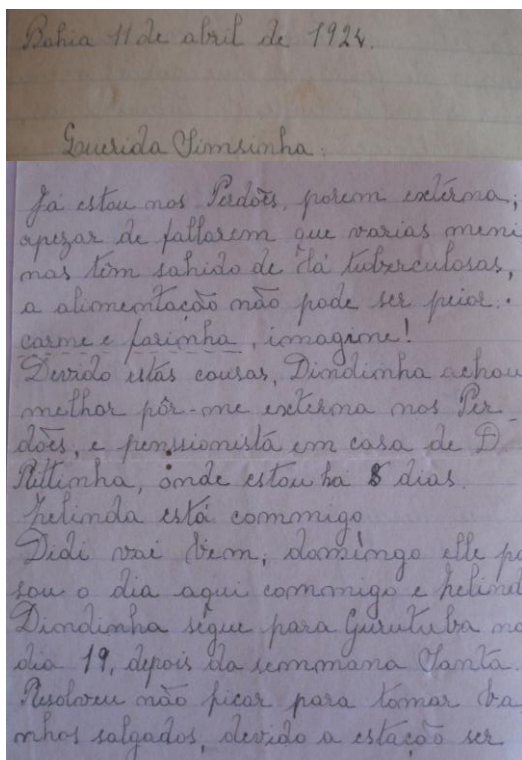 Bahia 11 de abril de 1924.
Querida Simsinha:
Já estou nos Perdões, porem externa;
apezar de fallarem que varias meni
nas têm sahido de lá tuberculosas,
a alimentação não pode ser peior.
carme e farinha, imagine!
Devido estas cousas, Dindinha achou
melhor pôr-me externa nos Per-
dões, e penssionista em casa de D.
Rittinha, onde estou ha 8 dias.
Helinda está commigo
Didi vai bem; domingo elle pa
sou o dia aqui commigo e Helind
Dindinha segue para Gurutuba no
dia 19, depois da semmana Santa.
Resolveu não ficar para tomar ba
nhos salgados, devido a estação ser